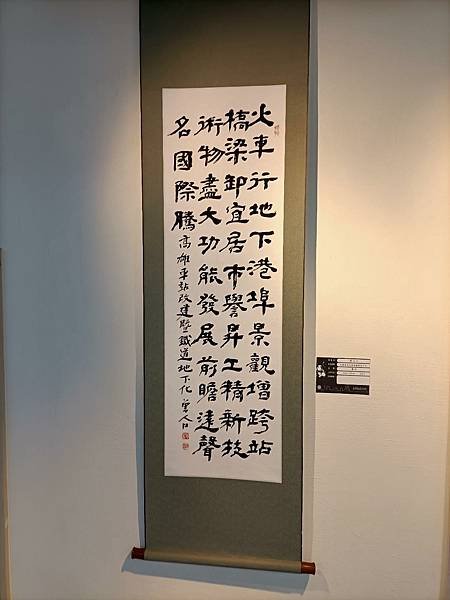 火車行地下港埠景觀增跨站
橋梁卸宜居市譽昇工精新技
術物盡大功能發展前瞻達聲
名國際騰高雄車站改建暨鐵道地下化